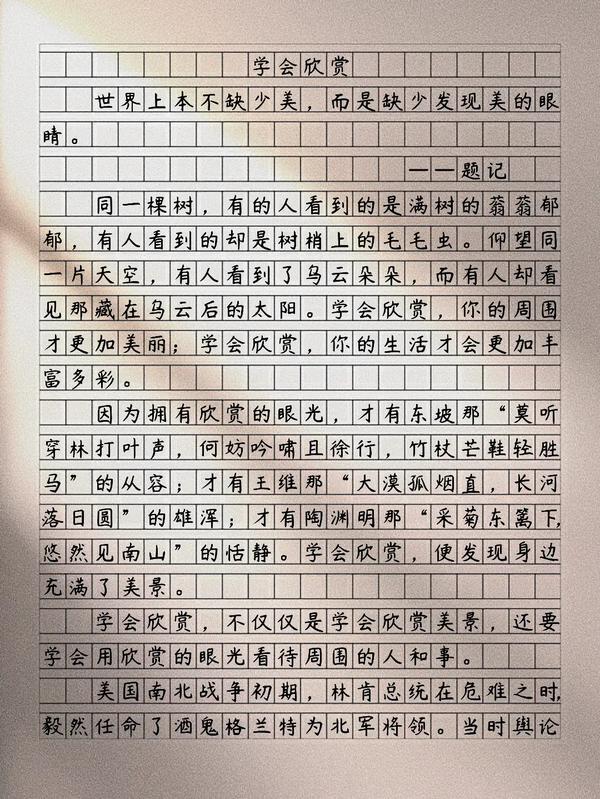 学会欣赏
世界上本不缺少美，而是缺少发现美的眼
睛。
——题记
同一棵树，有的人看到的是满树的蓊蓊郁
郁，有人看到的却是树梢上的毛毛虫。仰望同
一片天空，有人看到了乌云朵朵，而有人却看
见那藏在乌云后的太阳。学会欣赏，你的周围
才更加美丽；学会欣赏，你的生活才会更加丰
富多彩。
因为拥有欣赏的眼光，才有东坡那“莫听
穿林打叶声，何妨吟啸且徐行，竹杖芒鞋轻胜
马”的从容；才有王维那“大漠孤烟直，长河
落日圆”的雄浑；才有陶渊明那“采菊东篱下，
悠然见南山”的恬静。学会欣赏，便发现身边
充满了美景。
学会欣赏，不仅仅是学会欣赏美景，还要
学会用欣赏的眼光看待周围的人和事。
美国南北战争初期，林肯总统在危难之时，
毅然任命了酒鬼格兰特为北军将领。当时舆论